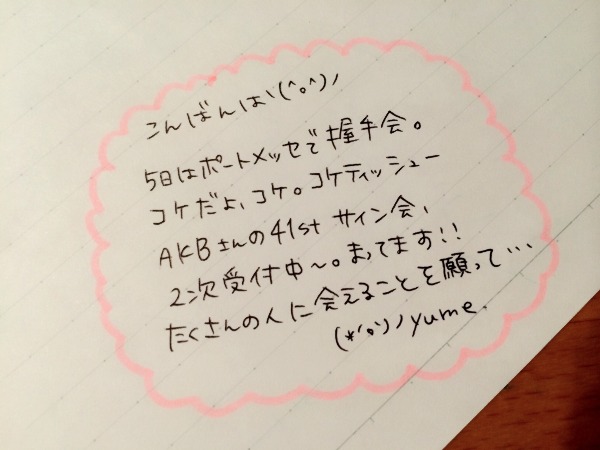 こんばんはヽ(^o^)ノ
5日はポートメッセで握手会。
コケだよ、コケ。コケティッシュー
AKBさんの41stサイン会、
2次受付中〜。まってます!!
たくさんの人に会えることを願って…
(*'o')ノyume.